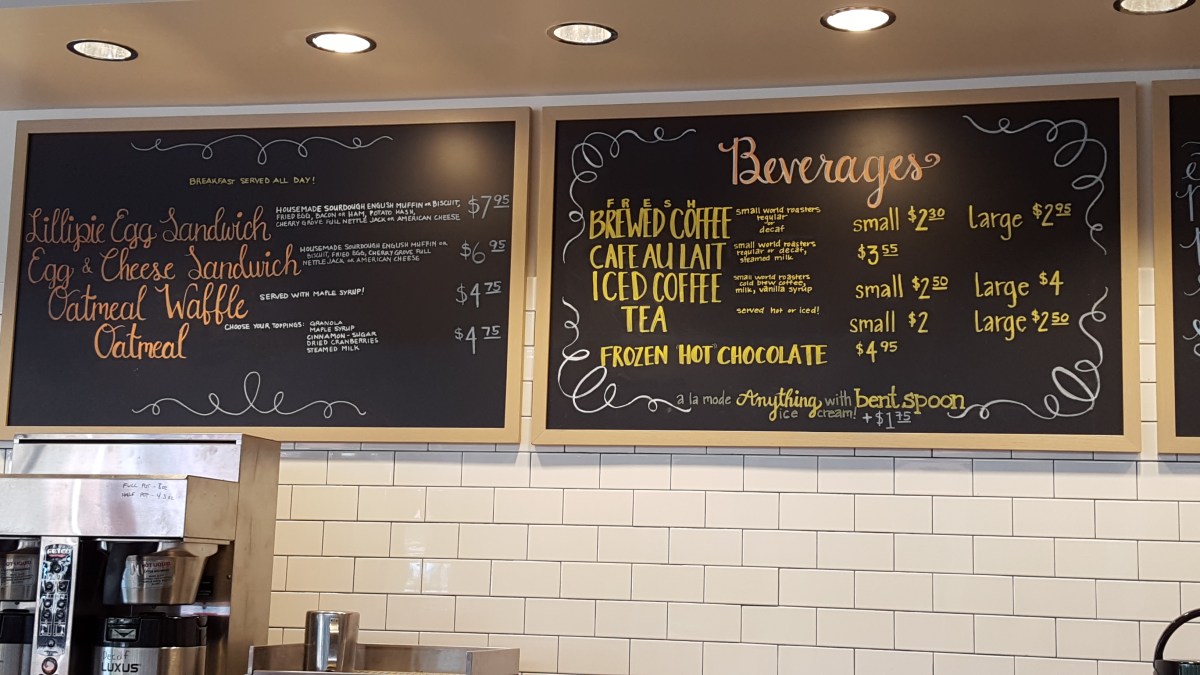 BREAKFAST SERVED ALL DAY!
Lillipie Egg Sandwich
HOUSEMADE SOURDOUGH ENGLISH MUFFIN OR BISCUIT,
FRIED EGG, BACON OR HAM, POTATO HASH,
CHERRY GROVE FULL NETTLE JACK OR AMERICAN CHEESE
$7 95
Egg & Cheese Sandwich
HOUSEMADE SOURDOUGH ENGLISH MUFFIN OR
BISCUIT, FRIED EGG, CHERRY GROVE FULL
NETTLE JACK OR AMERICAN CHEESE
$6 95
Oatmeal Waffle
SERVED WITH MAPLE SYRUP!
$4 75
Oatmeal
CHOOSE YOUR TOPPINGS: GRANOLA
MAPLE SYRUP
CINNAMON-SUGAR
DRIED CRANBERRIES
STEAMED MILK
$4 75
Beverages
FRESH
BREWED COFFEE
small world roasters
regular
decaf
small $2 30 Large $2 95
CAFE AU LAIT
small world roasters
regular or decaf,
steamed milk
$3 55
ICED COFFEE
small world roasters
cold brew coffee,
milk, vanilla syrup
small $2 50 Large $4
TEA
served hot or iced!
small $2 Large $2 50
FROZEN "HOT" CHOCOLATE $4 95
a la mode Anything with bent spoon
ice cream! +$1 75
FULL POT - 8 OZ
HALF POT - 4 OZ
Decaf
LUXUS